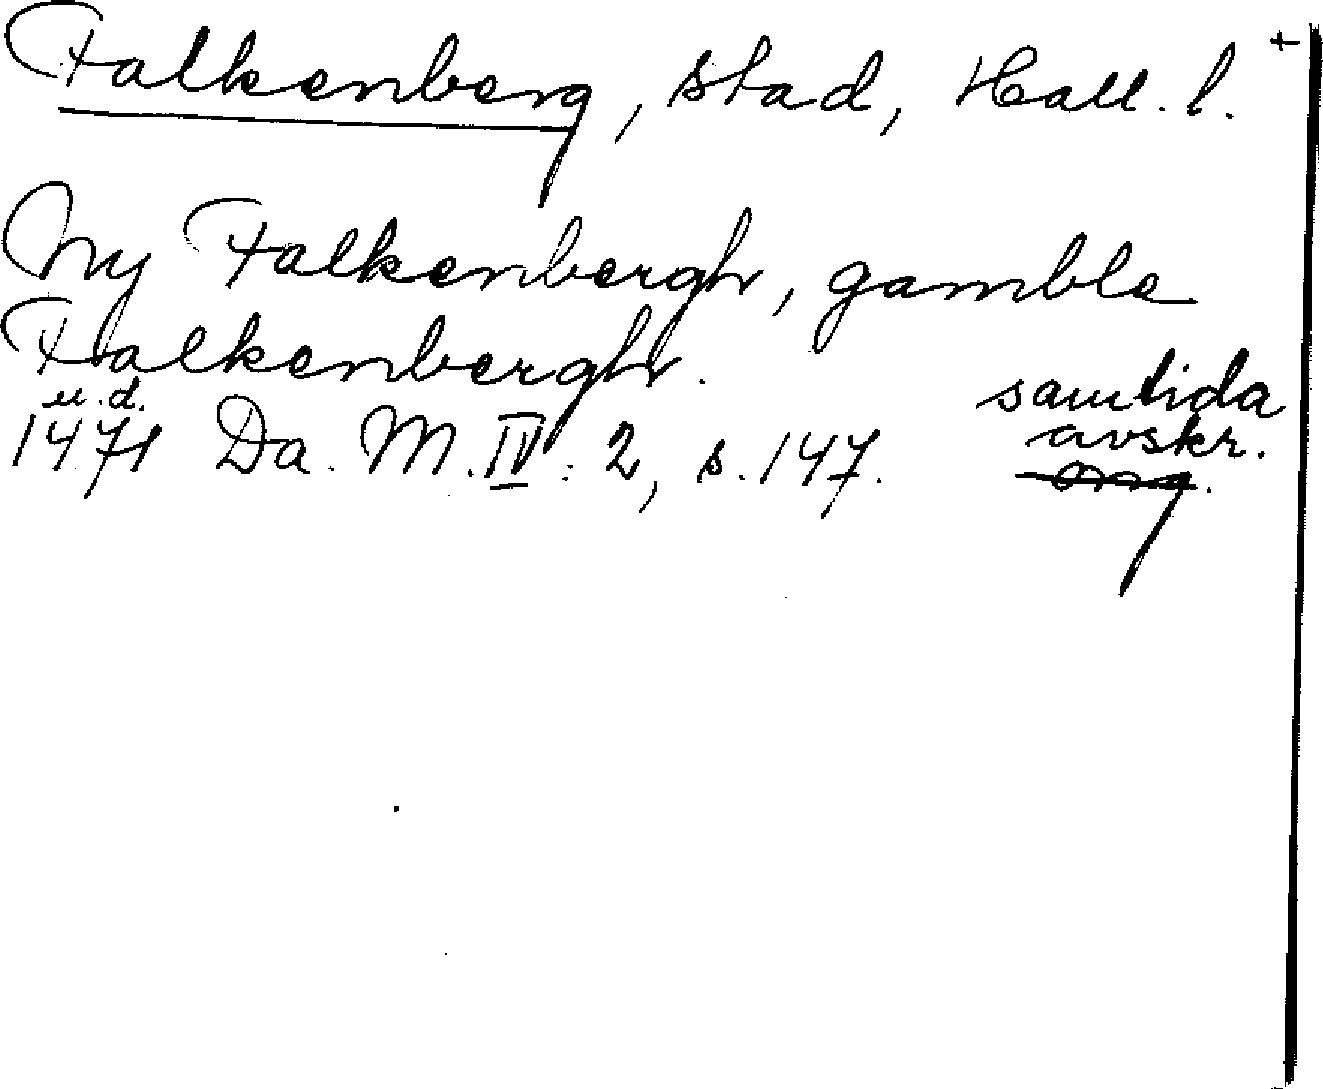 Falkenberg, stad, Hall. l. +
Ny Falkenbergh, gamble
Falkenbergh.
u.d.
1471 Da. M. IV: 2, s. 147.
samtida
avskr.
org.